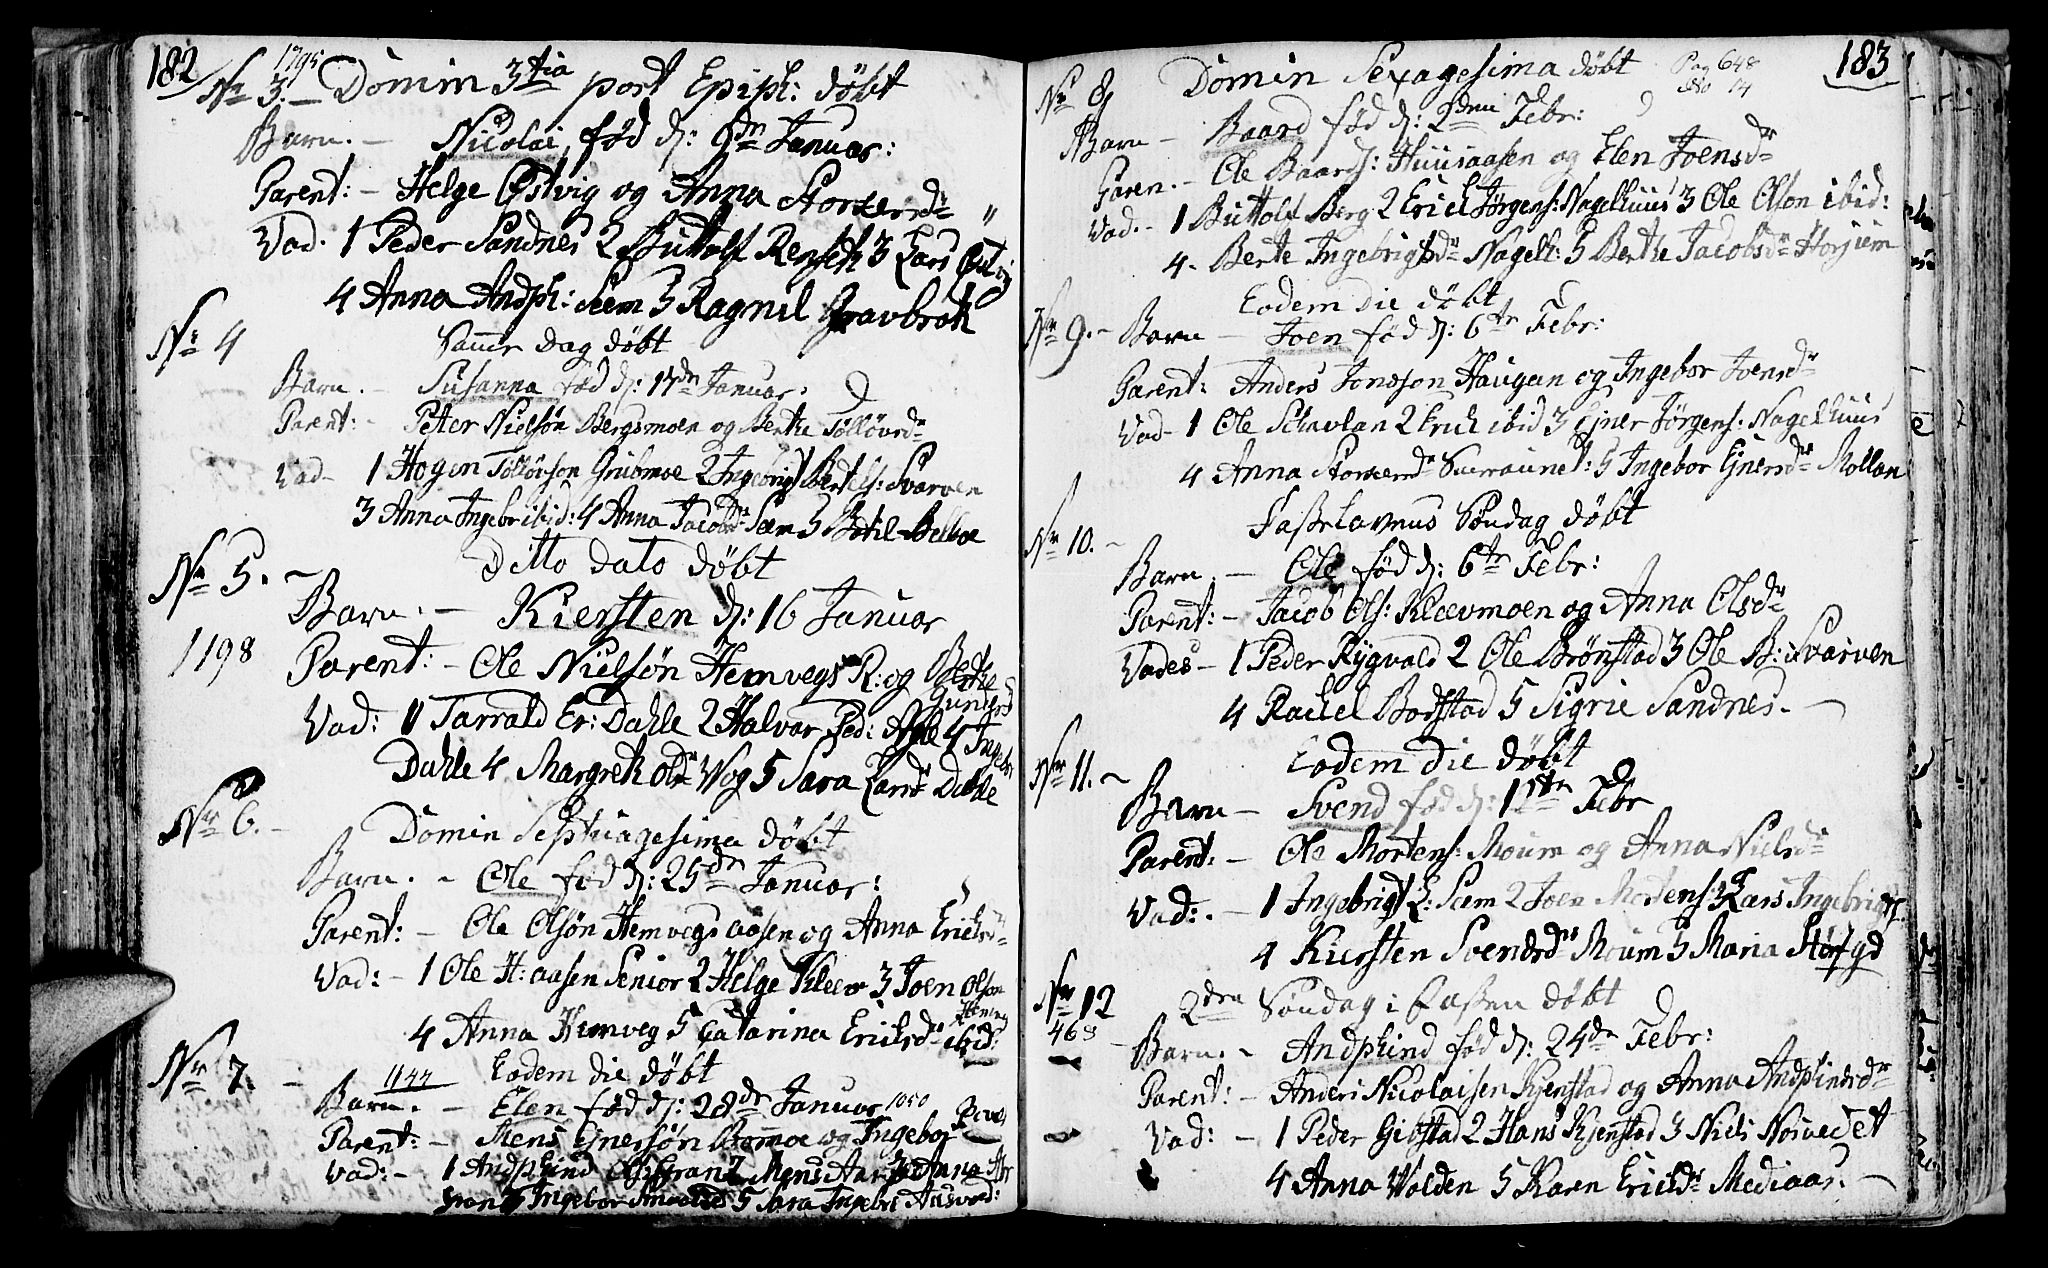 182
1795
Nr 3. — Domin 3tia post Epiph: døbt
Barn. — Nicolai, fød d: 9de Januar:
Parent: — Helge Østvig og Anna Storkersdr
Vad. 1 Peder Sandnes 2 Buttolf Rensek 3 Lars Østvig
4 Anna Andph: Seem 5 Ragnil Gravbrok
Nr 4 Samme dag døbt
Barn. — Susanna fød d: 17de Januar:
Parent: — Peter Nielsøn Bergsmoen og Berthe Tolløvsdr
Vad — 1 Hogen Tolløvson Grubmoe 2 Ingebrigt Bertels: Svarven
3 Anna Ingebr ibid: 4 Anna Jacobsdr Seem 5 Botil Belboe
Nr 5. — Ditto dato døbt
Barn. — Kiersten d: 16 Januar
1198
Parent: — Ole Nielsøn Hemvegs R: og Berthe
Gundersd
Vad: 1 Tarrald Er: Dahle 2 Halvor Ped: 4 Ingebr
Dahle 4 Margreth Olsdr Vog 5 Sara Larsdr Dahle
Nr 6. — Domin Septuagesima døbt
Barn. — Ole fød d: 25de Januar:
Parent: — Ole Olsøn Hemvegsaasen og Anna Ericksdr
Vad: — 1 Ole H: aasen Senior 2 Helge Kleev 3 Joen Olson
Hemveg
4 Anna Hemveg 5 Catarina Ericksdr ibid:
Nr 7. — Eodem die døbt
1144
Barn. — Elen fød d: 28de Januar 1050
Parent: — Mens Ejnersøn Bomoe og Ingebor
Vad: — 1 Andphind Gran 2 Mens 3 Anna
Gran 4 Ingebor 5 Sara Ingebr
183
Pag 648
No 14
Nr 8 Domin Sexagesima døbt
Barn — Baard fød d: 2den Febr:
Paren. — Ole Baards: Huusaasen og Elen Joensdr
Vad. — 1 Buttolf Berg 2 Erick Jørgens: Nagelhuus 3 Ole Olson ibid:
4. Berte Ingebrigtsdr Nagelh: 5 Berthe Jacobsdr Horjem
Eodem die døbt
Nr 9. — Barn — Joen fød d: 6te Febr:
Parent: Anders Jonsson Haugen og Ingebor Joensdr
Vad — 1 Ole Schavlan 2 Erich ibid 3 Ejner Jørgens: Nagelhuus
4 Anna Storkersdr Surraunet: 5 Ingebor Ejnersdr Mollan
Nr 10. — Fastelavens Søndag døbt
Barn. — Ole fød d: 6te Febr:
Parent: — Jacob Ols: Kleevmoen og Anna Olsdr
Vades — 1 Peder Rygvold 2 Ole Brønstad 3 Ole B: Svarven
4 Rachel Bodstad 5 Sigrie Sandnes. —
Nr 11. — Eodem die døbt
Barn — Svend fød d: 12te Febr
Parent: — Ole Mortens: Moum og Anna Nielsdr
Vad: — 1 Ingebrigt L: Seem 2 Joen Mortens 3 Lars Ingebrigts.
4 Kiersten Svendsdr Moum 5 Maria
Nr 12 2den Søndag i Fasten døbt
468
Barn. — Andphind fød d: 24de Febr:
Parent: — Anders Nicolaisen Kjenstad og Anna Andphindsdr
Vad: — 1 Peder Gibstad 2 Hans Kjenstad 3 Niels Norvedet
4 Anna Volden 5 Karen Ericksdr Mediaas. —